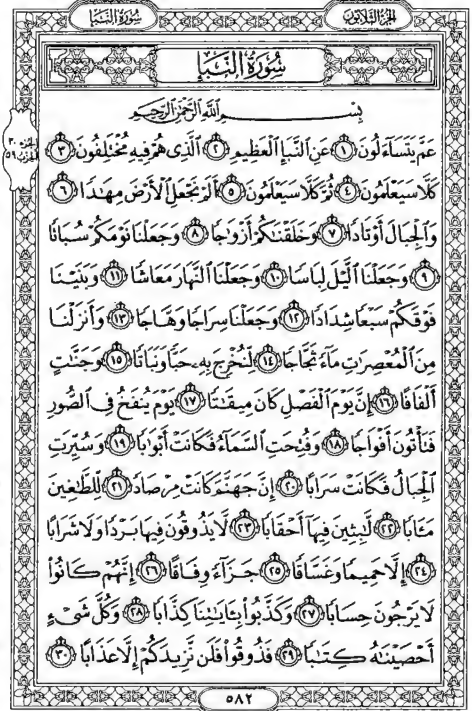 سُورَةُ النَّبَإِ
الجُزءُ الثَّلَاثُونَ
سُورَةُ النَّبَإِ
بِسْمِ اللَّهِ الرَّحْمَٰنِ الرَّحِيمِ
عَمَّ يَتَسَآءَلُونَ ١ عَنِ ٱلنَّبَإِ ٱلْعَظِيمِ ٢ ٱلَّذِى هُمْ فِيهِ مُخْتَلِفُونَ ٣
كَلَّا سَيَعْلَمُونَ ٤ ثُمَّ كَلَّا سَيَعْلَمُونَ ٥ أَلَمْ نَجْعَلِ ٱلْأَرْضَ مِهَٰدًا ٦
وَٱلْجِبَالَ أَوْتَادًا ٧ وَخَلَقْنَٰكُمْ أَزْوَٰجًا ٨ وَجَعَلْنَا نَوْمَكُمْ سُبَاتًا
٩ وَجَعَلْنَا ٱلَّيْلَ لِبَاسًا ١٠ وَجَعَلْنَا ٱلنَّهَارَ مَعَاشًا ١١ وَبَنَيْنَا
فَوْقَكُمْ سَبْعًا شِدَادًا ١٢ وَجَعَلْنَا سِرَاجًا وَهَّاجًا ١٣ وَأَنزَلْنَا
مِنَ ٱلْمُعْصِرَٰتِ مَآءً ثَجَّاجًا ١٤ لِّنُخْرِجَ بِهِۦ حَبًّا وَنَبَاتًا ١٥ وَجَنَّٰتٍ
أَلْفَافًا ١٦ إِنَّ يَوْمَ ٱلْفَصْلِ كَانَ مِيقَٰتًا ١٧ يَوْمَ يُنفَخُ فِى ٱلصُّورِ
فَتَأْتُونَ أَفْوَاجًا ١٨ وَفُتِحَتِ ٱلسَّمَآءُ فَكَانَتْ أَبْوَٰبًا ١٩ وَسُيِّرَتِ
ٱلْجِبَالُ فَكَانَتْ سَرَابًا ٢٠ إِنَّ جَهَنَّمَ كَانَتْ مِرْصَادًا ٢١ لِّلطَّٰغِينَ
مَـَٔابًا ٢٢ لَّٰبِثِينَ فِيهَآ أَحْقَابًا ٢٣ لَّا يَذُوقُونَ فِيهَا بَرْدًا وَلَا شَرَابًا
٢٤ إِلَّا حَمِيمًا وَغَسَّاقًا ٢٥ جَزَآءً وِفَاقًا ٢٦ إِنَّهُمْ كَانُوا۟
لَا يَرْجُونَ حِسَابًا ٢٧ وَكَذَّبُوا۟ بِـَٔايَٰتِنَا كِذَّابًا ٢٨ وَكُلَّ شَىْءٍ
أَحْصَيْنَٰهُ كِتَٰبًا ٢٩ فَذُوقُوا۟ فَلَن نَّزِيدَكُمْ إِلَّا عَذَابًا ٣٠
٥٨٢